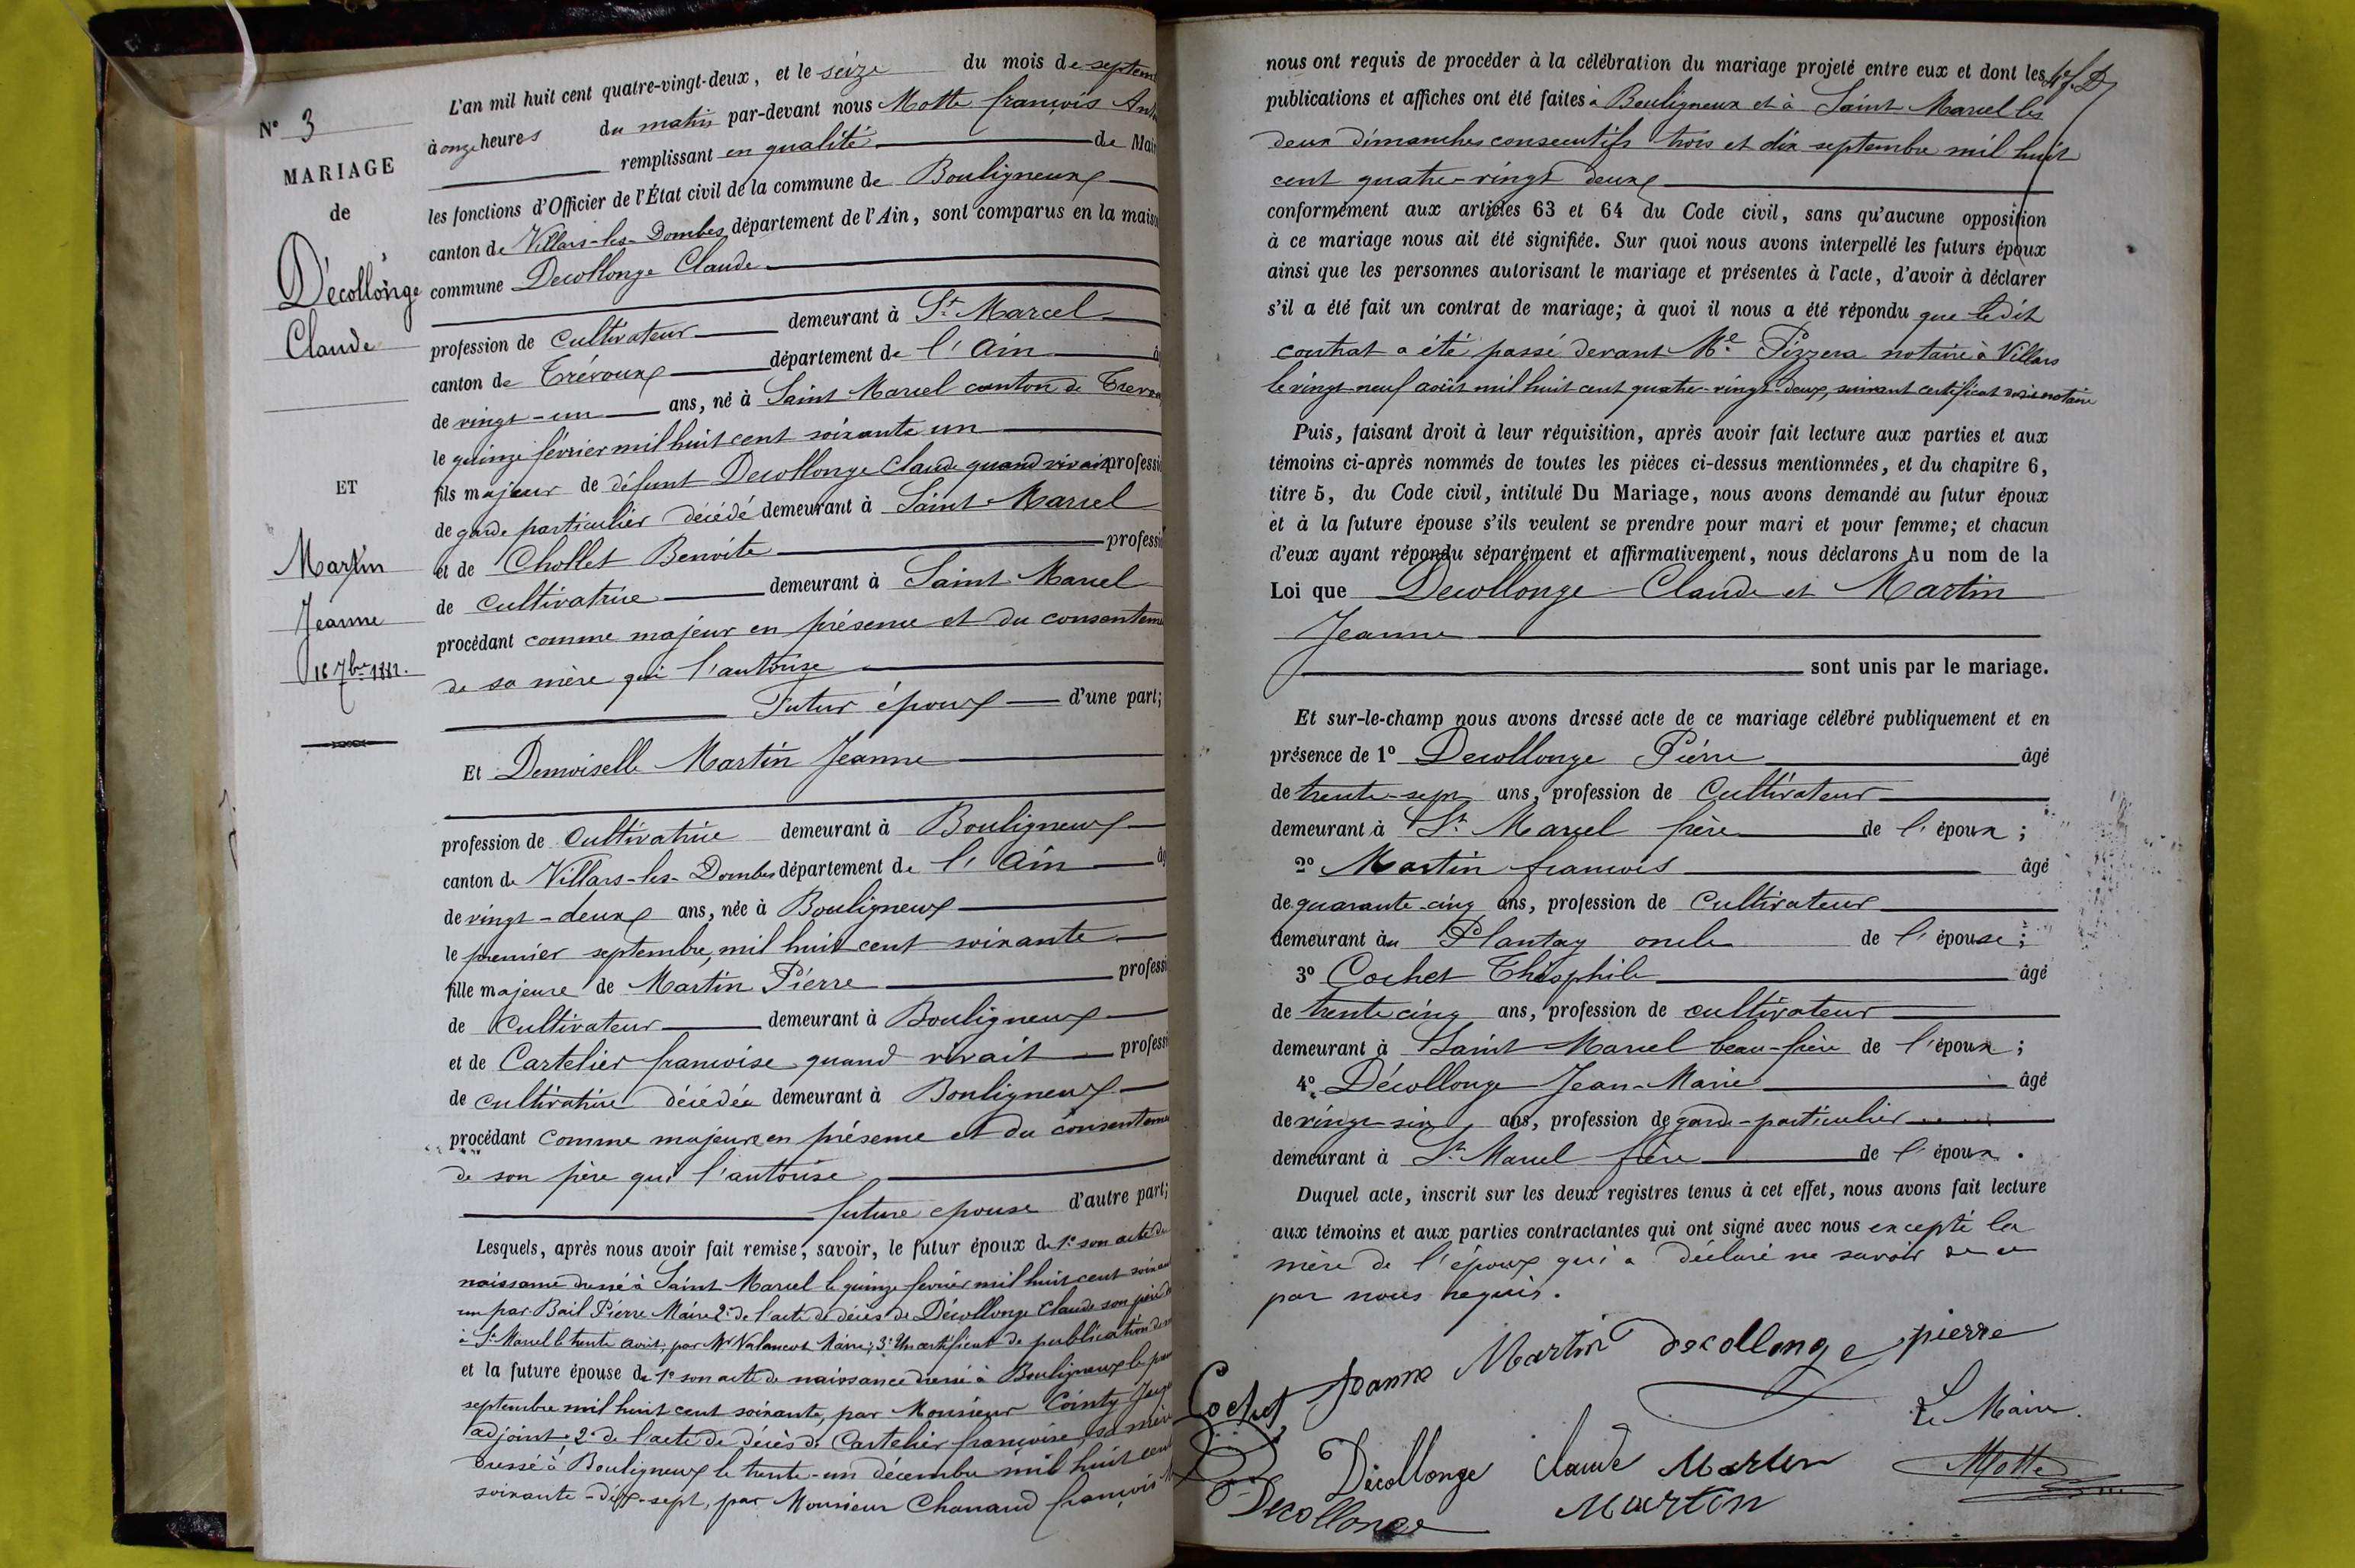 N° 3
MARIAGE
de
Décollonge
Claude
ET
Martin
Jeanne
16 7bre 1882.
L'an mil huit cent quatre-vingt-deux, et le seize du mois de septem
à onze heures du matin par-devant nous Motte françois
remplissant en qualité de Mai
les fonctions d'Officier de l'État civil de la commune de Bouligneux
canton de Villars-les-Dombes département de l'Ain, sont comparus en la maiso
commune Decollonge Claude
profession de cultivateur demeurant à St Marcel
canton de Trévoux département de l'Ain
de vingt-un ans, né à Saint Marcel canton de Trevou
le quinze février mil huit cent soixante un
fils majeur de défunt Decollonge Claude quand vivait professi
de garde particulier décédé demeurant à Saint Marcel
et de Chollet Benoite professi
de cultivatrice demeurant à Saint Marcel
procédant comme majeur en présence et du consenteme
de sa mère qui l'autorise
Futur époux d'une part;
Et Demoiselle Martin Jeanne
profession de Cultivatrice demeurant à Bouligneux
canton de Villars-les-Dombes département de l'Ain
de vingt-deux ans, née à Bouligneux
le premier septembre, mil huit cent soixante
fille majeure de Martin Pierre professi
de Cultivateur demeurant à Bouligneux
et de Cartelier francoise quand vivait professi
de cultivatrice décédée demeurant à Bouligneux
procédant comme majeure en présence et du consenteme
de son père qui l'autorise
future epouse d'autre part;
Lesquels, après nous avoir fait remise, savoir, le futur époux de 1° son acte de
naissance dressé à Saint Marcel le quinze fevrier mil huit cent soixante
un par Bail Pierre Maire 2° de l'acte de décès de Décollonge Claude son père
à St Marcel le trente août, par Mr Valancot Maire; 3° Un certificat de publication
et la future épouse de 1° son acte de naissance dressé à Bouligneux le
septembre mil huit cent soixante, par Monsieur Cointy
adjoint 2° de l'acte de décès de Cartelier françoise, sa mère
dressé à Bouligneux le trente-un décembre mil huit cent
soixante-dix-sept, par Monsieur Chanard françois
nous ont requis de procéder à la célébration du mariage projeté entre eux et dont les
publications et affiches ont été faites à Bouligneux et à Saint Marcel les
deux dimanches consecutifs trois et dix septembre mil huit
cent quatre-vingt deux
conformément aux articles 63 et 64 du Code civil, sans qu'aucune opposition
à ce mariage nous ait été signifiée. Sur quoi nous avons interpellé les futurs époux
ainsi que les personnes autorisant le mariage et présentes à l'acte, d'avoir à déclarer
s'il a été fait un contrat de mariage; à quoi il nous a été répondu que le dit
contrat a été passé devant Me Pizzera notaire à Villars
le vingt-neuf août mil huit cent quatre-vingt-deux, suivant certificat notaire
Puis, faisant droit à leur réquisition, après avoir fait lecture aux parties et aux
témoins ci-après nommés de toutes les pièces ci-dessus mentionnées, et du chapitre 6,
titre 5, du Code civil, intitulé Du Mariage, nous avons demandé au futur époux
et à la future épouse s'ils veulent se prendre pour mari et pour femme; et chacun
d'eux ayant répondu séparément et affirmativement, nous déclarons Au nom de la
Loi que Decollonge Claude et Martin
Jeanne
sont unis par le mariage.
Et sur-le-champ nous avons dressé acte de ce mariage célébré publiquement et en
présence de 1° Decollonge Piérre âgé
de trente-sept ans, profession de Cultivateur
demeurant à St Marcel frère de l'époux;
2° Martin francois âgé
de quarante-cinq ans, profession de Cultivateur
demeurant au Plantay oncle de l'épouse;
3° Cochet Théophile âgé
de trente cinq ans, profession de cultivateur
demeurant à Saint Marcel beau-frère de l'époux;
4° Décollonge Jean-Marie âgé
de vingt-six ans, profession de garde-particulier
demeurant à St Marcel frère de l'époux.
Duquel acte, inscrit sur les deux registres tenus à cet effet, nous avons fait lecture
aux témoins et aux parties contractantes qui ont signé avec nous excepté la
mère de l'époux qui a déclaré ne savoir de ce
par nous requis.
Jeanne Martin decollonge pierre
Cochet
Le Maire
Décollonge Claude Martin
Motte
Decollonge Martin